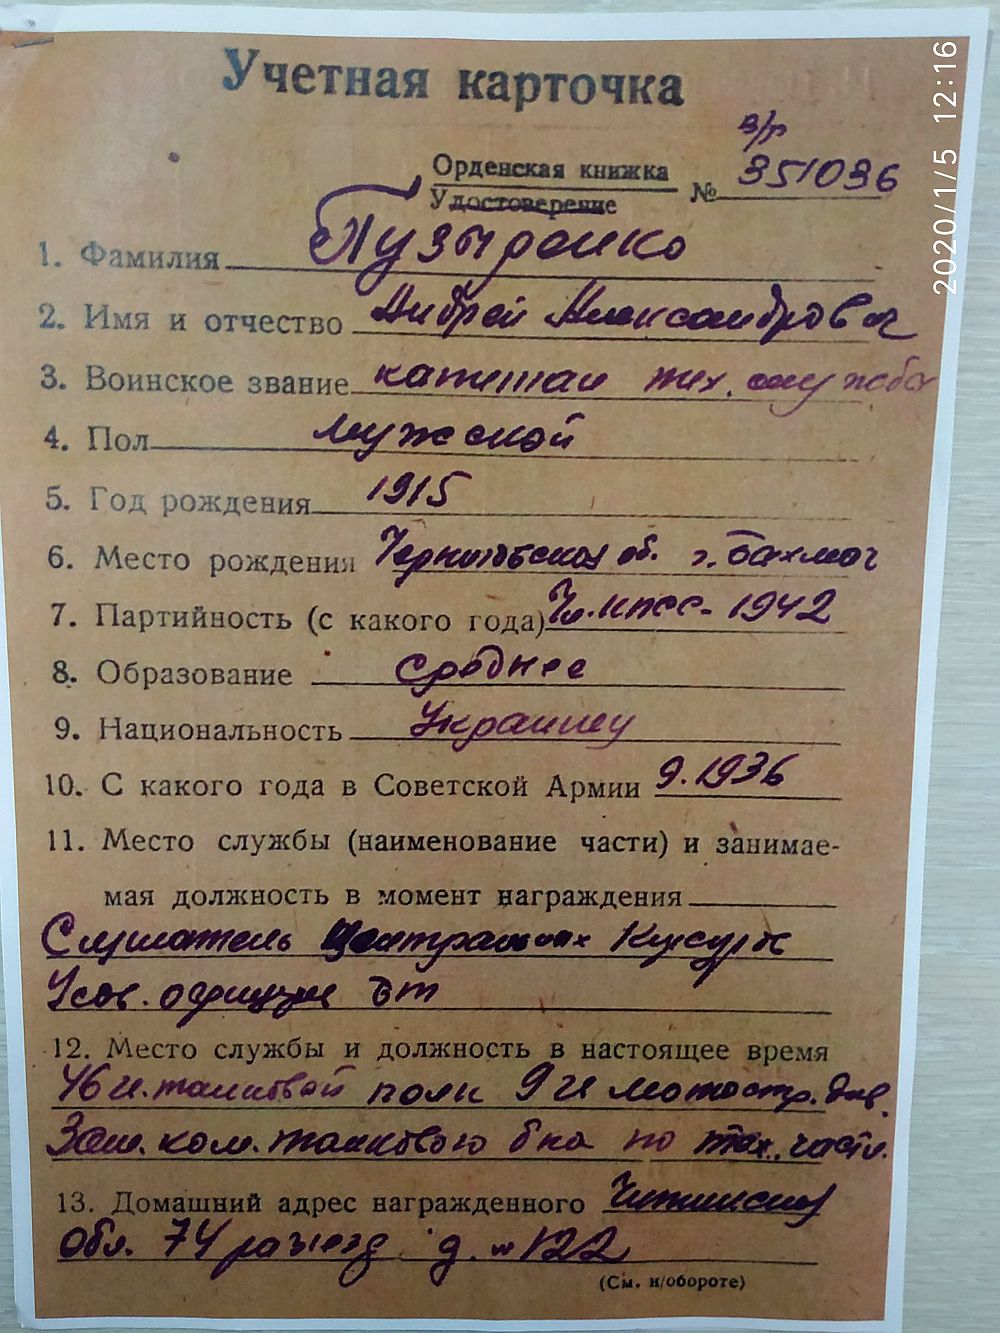 Учетная карточка
в/р
Орденская книжка
Удостоверение № 351036
1. Фамилия Пузыренко
2. Имя и отчество Андрей Александрович
3. Воинское звание капитан тех. службы
4. Пол мужской
5. Год рождения 1915
6. Место рождения Черниговская об. г. Бахмач
7. Партийность (с какого года) Чл. КПСС - 1942
8. Образование среднее
9. Национальность Украинец
10. С какого года в Советской Армии 9.1936
11. Место службы (наименование части) и занимае-
мая должность в момент награждения
Слушатель Центральных Курсов
Усов. офицер БТ
12. Место службы и должность в настоящее время
46 й танковый полк 9 й мотостр. див.
Зам. ком. танкового б-на по тех. части.
13. Домашний адрес награжденного Читинская
Обл. 74 разъезд д. № 122
(См. н/обороте)
2020/1/5 12:16